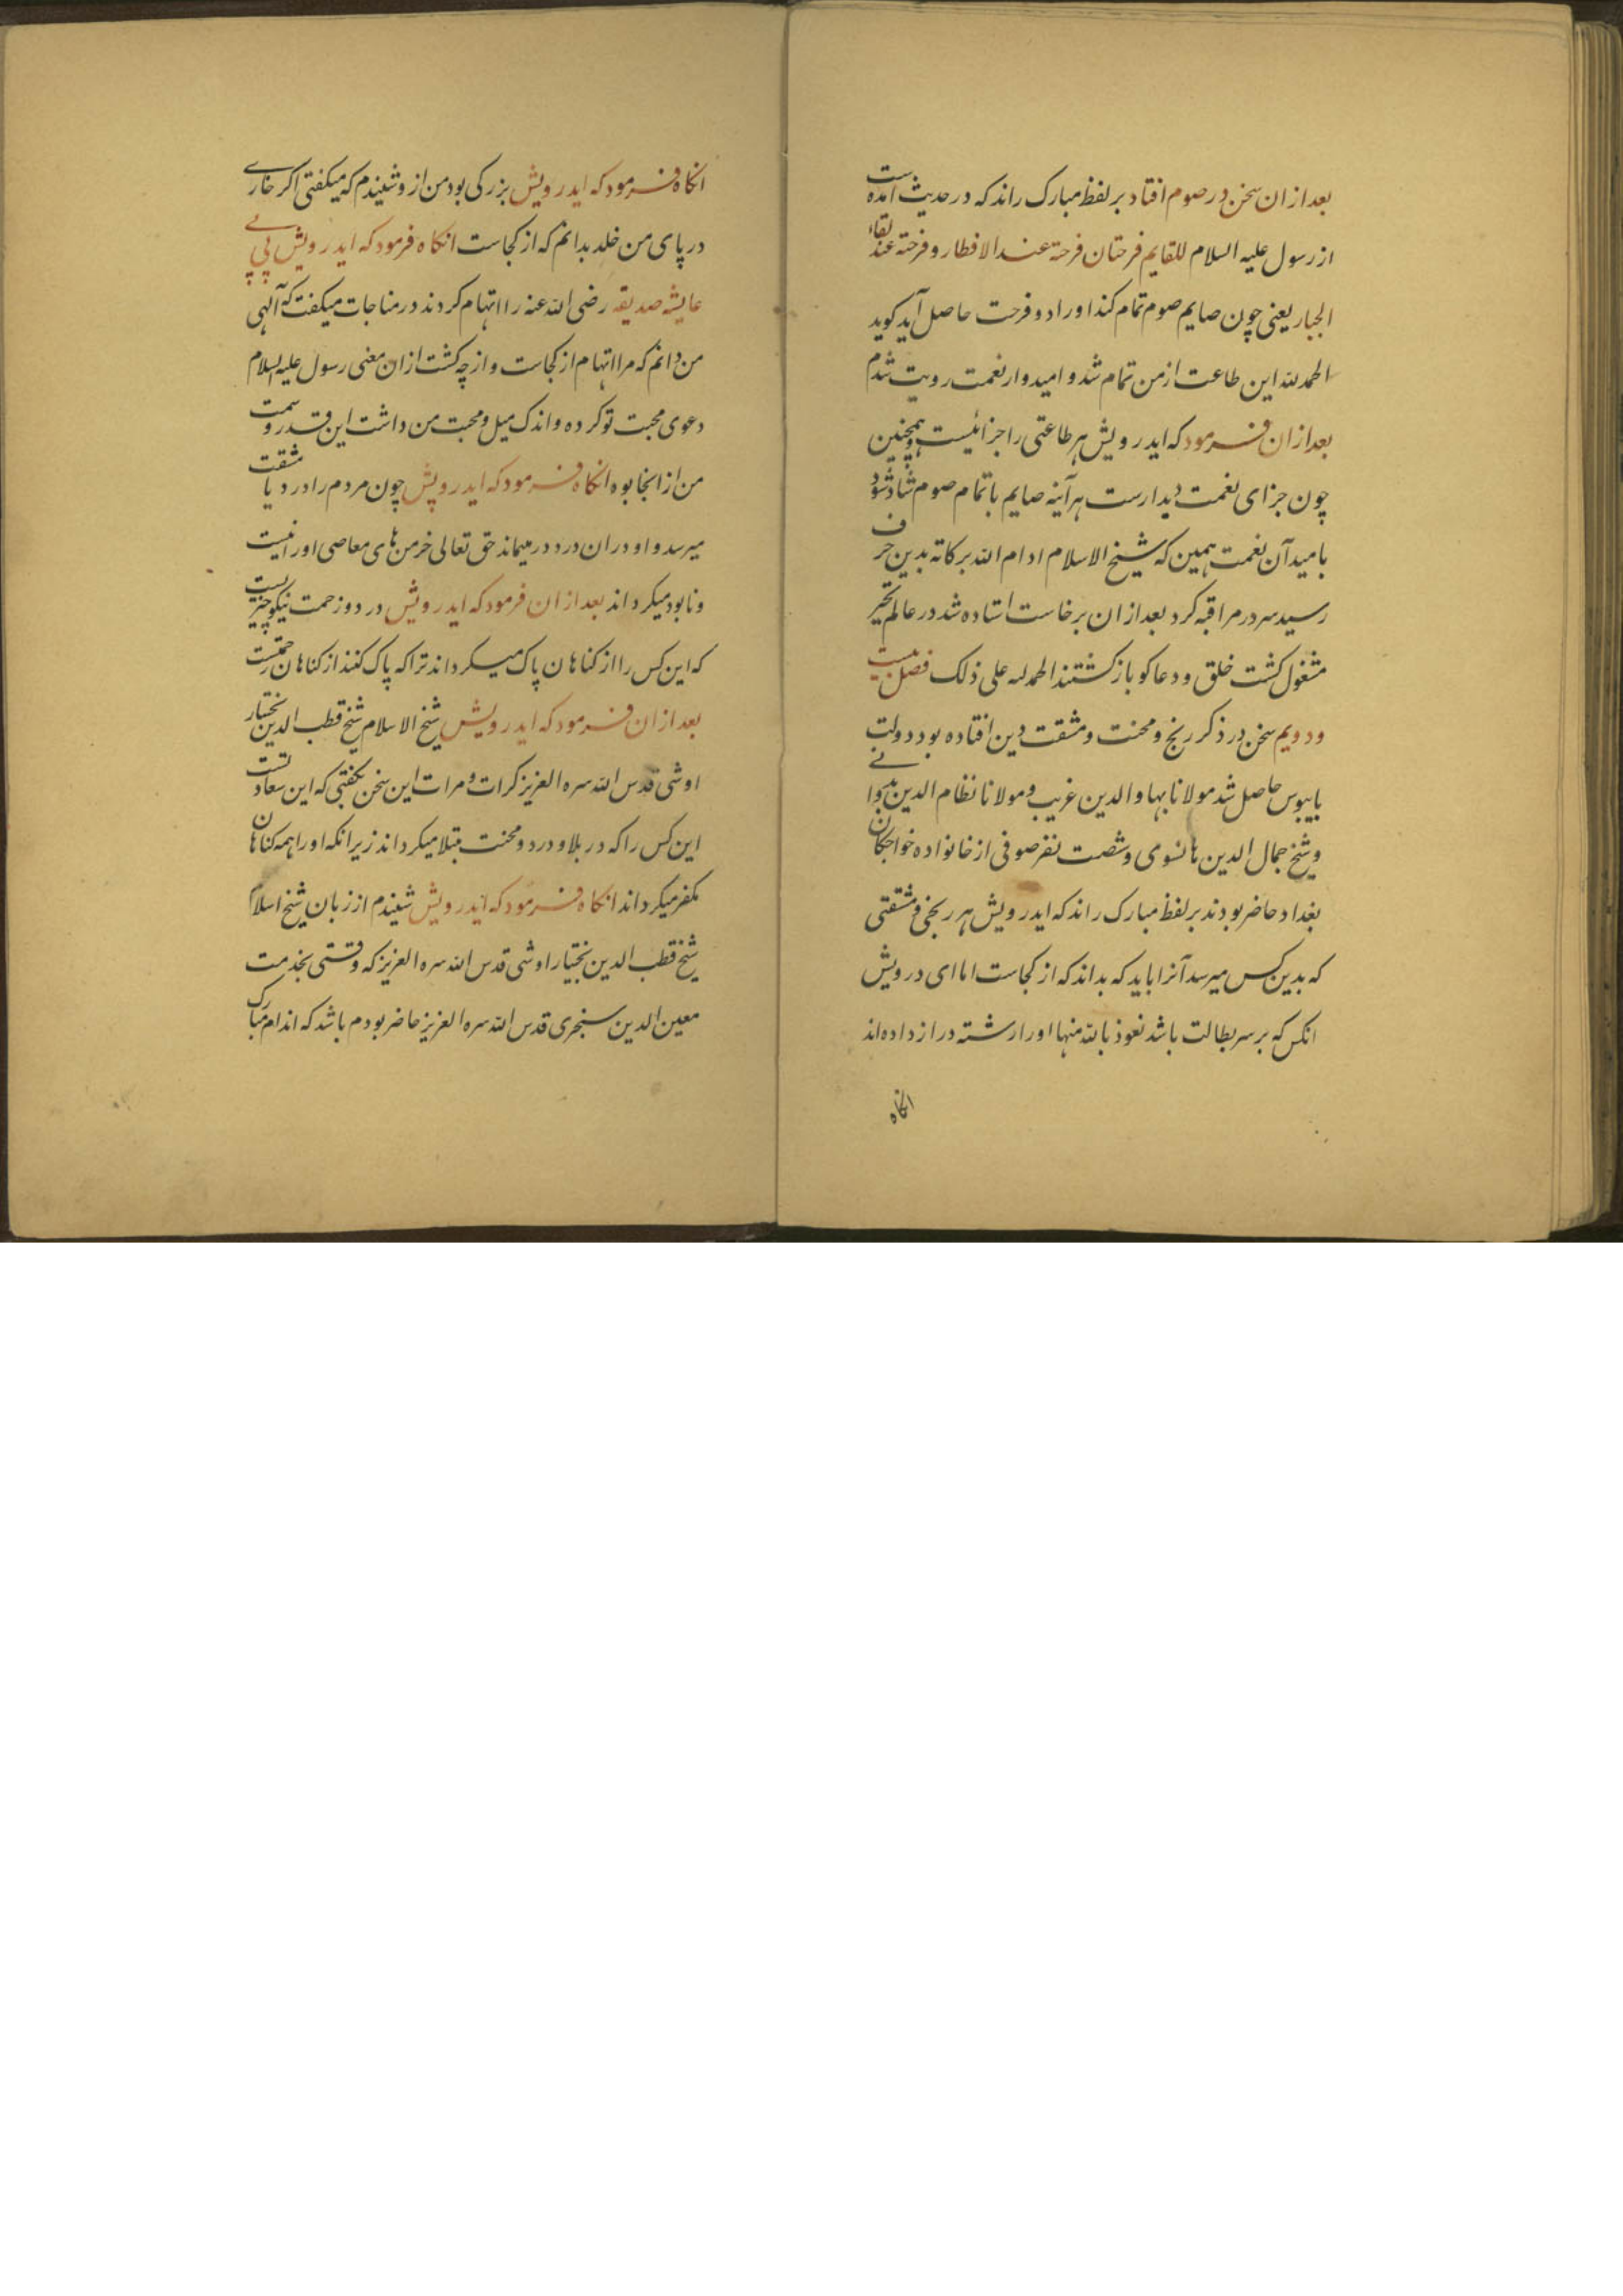 بعد ازان سخن در صوم افتاد بر لفظ مبارک راند که در حدیث آمده است
از رسول علیه السلام للقایم فرحتان فرحة عند الافطار و فرحة عند لقاء
الجبار یعنی چون صایم صوم تمام کند اورا دو فرحت حاصل آید کوید
الحمد لله این طاعت از من تمام شد و امیدوار نعمت رویت شدم
بعد ازان فرمود که ایدرویش هر طاعتی را جزائیست و همچنین
چون جزای نعمت دیدارست هر آینه صایم باتمام صوم شاد شود
بامید آن نعمت همین که شیخ الاسلام ادام الله برکاته بدین حرف
رسید سر در مراقبه کرد بعد ازان برخاست استاده شد در عالم تحیر
مشغول کشت خلق و دعاکو باز کشتند الحمد لله علی ذلک فصل بیست
و دویم سخن در ذکر رنج و محنت و مشقت دین افتاده بود دولت
پایبوس حاصل شد مولانا بهاوالدین غریب و مولانا نظام الدین بدوانی
و شیخ جمال الدین هانسوی و شصت نفر صوفی از خانواده خواجکان
بغداد حاضر بودند بر لفظ مبارک راند که ایدرویش هر رنجی و مشقتی
که بدین کس میرسد آنرا باید که بداند که از کجاست اما ای درویش
انکس که بر سر بطالت باشد نعوذ بالله منها اورا رشته دراز داده اند
انکاه
انکاه فرمود که ایدرویش بزرکی بود من ازو شنیدم که میکفتی اکر خاری
در پای من خلد بدانم که از کجاست انکاه فرمود که ایدرویش بی بی
عایشه صدیقه رضی الله عنه را اتهام کردند در مناجات میکفت که آلهی
من دانم که مرا اتهام از کجاست و از چه کشت ازان معنی رسول علیه السلام
دعوی محبت تو کرده و اندک میل و محبت من داشت این قدر و سمت
من از انجا بوه انکاه فرمود که ایدرویش چون مردم را درد یا مشقت
میرسد و او دران درد درمیماند حق تعالی خرمن های معاصی اورا نیست
و نابود میکرداند بعد ازان فرمود که ایدرویش درد و زحمت نیکو چیزیست
که این کس را از کناهان پاک میکرداند ترا که پاک کند از کناهان زحمتست
بعد ازان فرمود که ایدرویش شیخ الاسلام شیخ قطب الدین بختیار
اوشی قدس الله سره العزیز کرات و مرات این سخن بکفتی که این سعادتست
این کس را که در بلا و درد و محنت مبتلا میکرداند زیرانکه اورا همه کناهان
مکفر میکرداند انکاه فرمود که ایدرویش شنیدم از زبان شیخ اسلام
شیخ قطب الدین بختیار اوشی قدس الله سره العزیز که وقتی بخدمت
معین الدین سنجری قدس الله سره العزیز حاضر بودم باشد که اندام مبارک